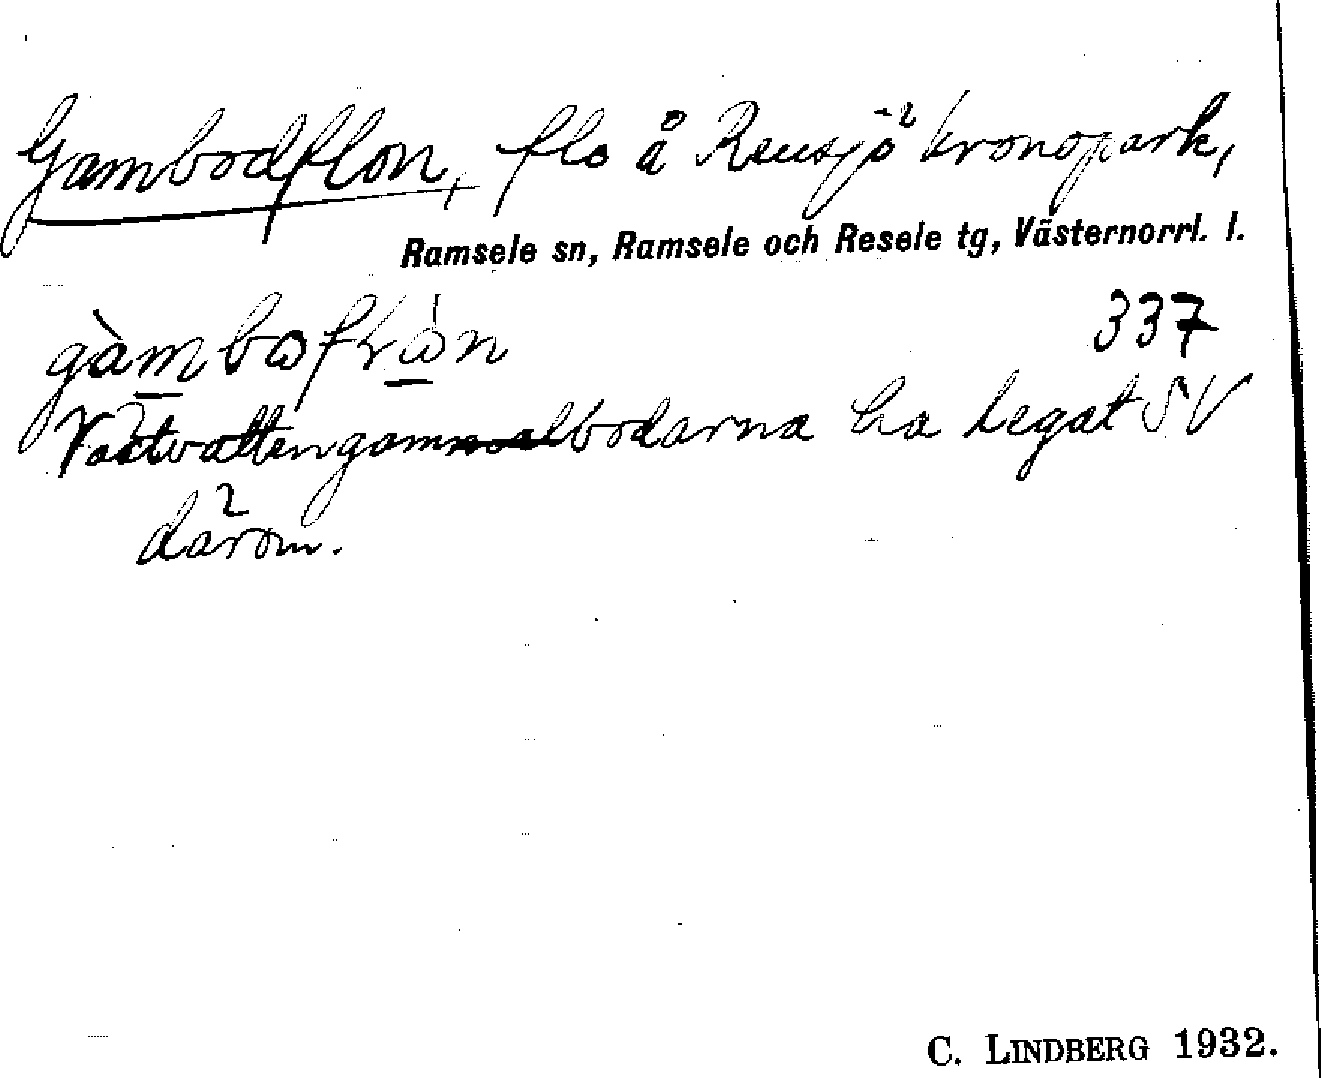 Gambodflon, flo å Rensjö kronopark,
Ramsele sn, Ramsele och Resele tg, Västernorrl. l.
337
Västvattengammalbodarna ha legat SV
därom.
C. LINDBERG 1932.